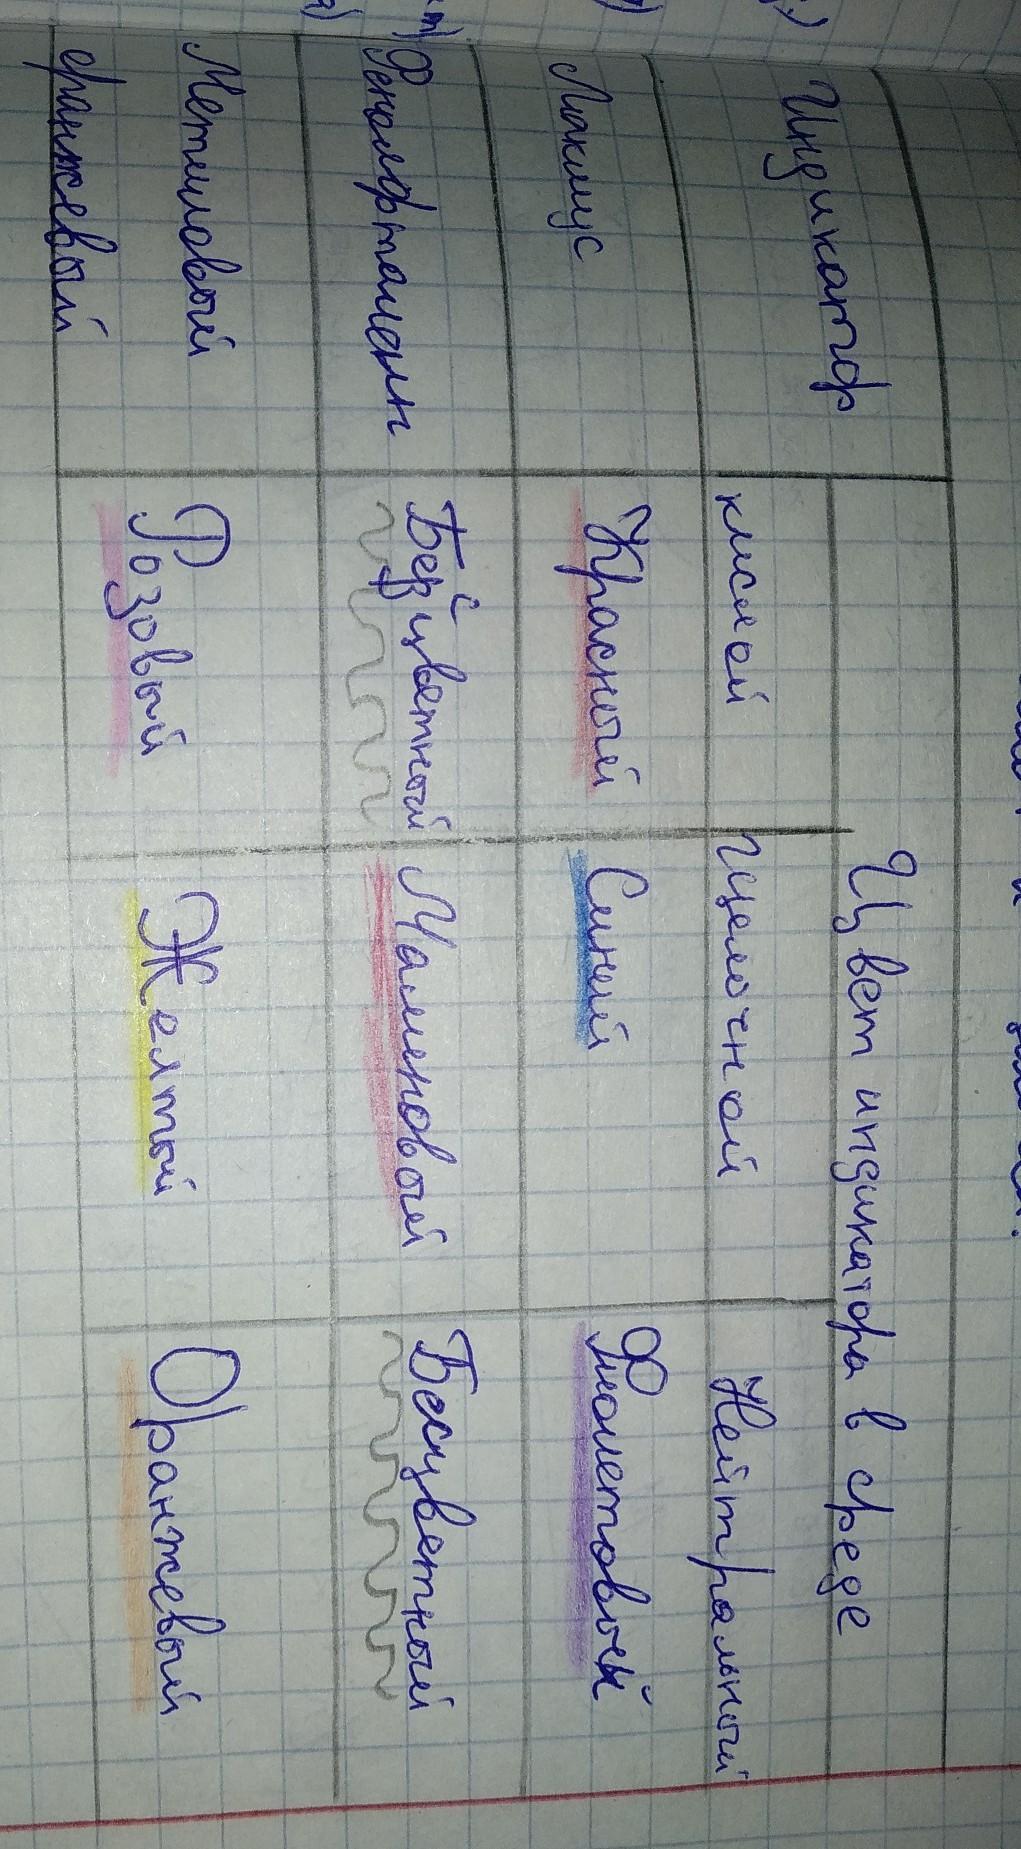 Индикатор
Цвет индикатора в среде
кислой
Щелочной
Нейтральный
Лакмус
Красный
Синий
Фиолетовый
Фенолфталеин
Безцветный
с
Малиновый
Бесцветный
Метиловый
оранжевый
Розовый
Желтый
Оранжевый